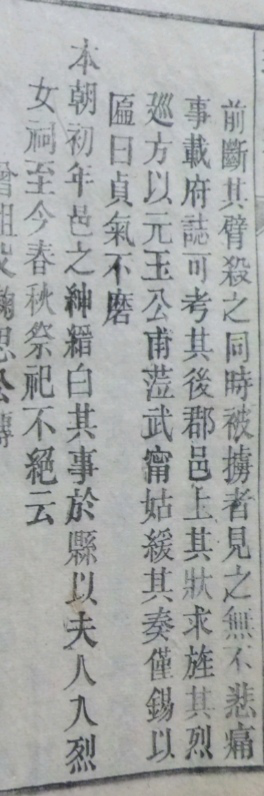 前斷其臂殺之同時被擄者見之無不悲痛
事載府誌可考其後郡邑上其狀求旌其烈
巡方以元王公甫蒞武甯姑緩其奏僅錫以
匾曰貞氣不磨
本朝初年邑之紳縉白其事於縣以夫人入烈
女祠至今春秋祭祀不絕云